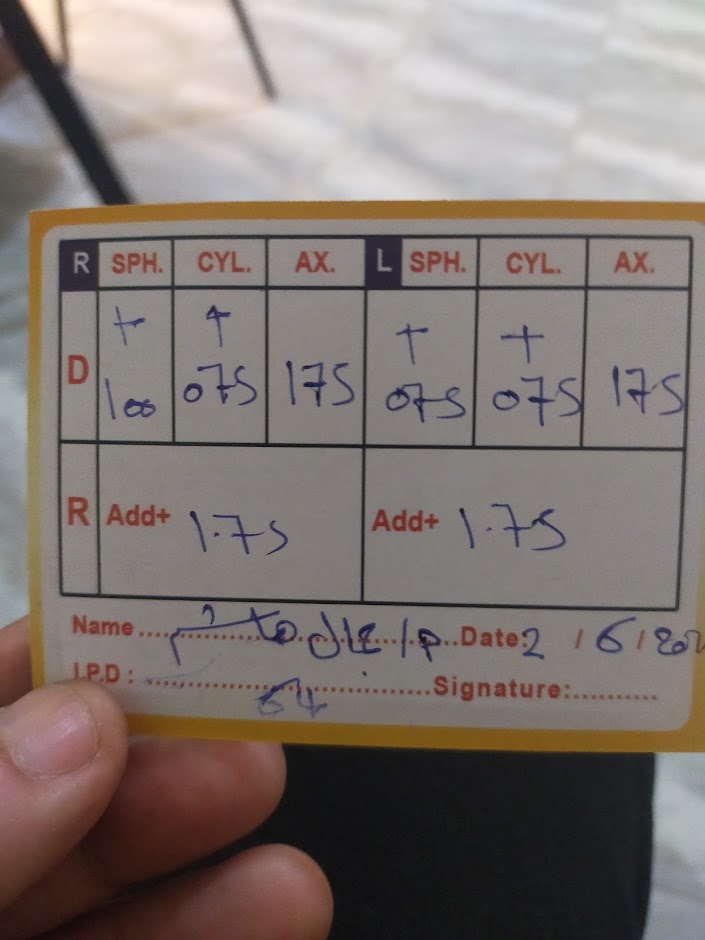 R SPH. CYL. AX. L SPH. CYL. AX.
D + 100 + 075 175 + 075 + 075 175
R Add+ 1.75 Add+ 1.75
Name Date: 2 / 6 /
I.P.D : 64 Signature: